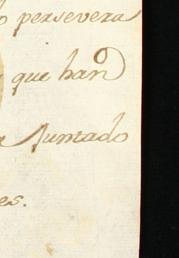 o persevera
que han
a Juntado
es.